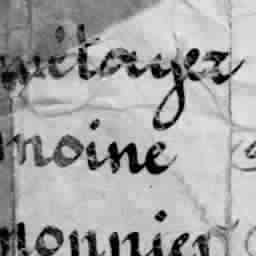 métayer
moine
monnier